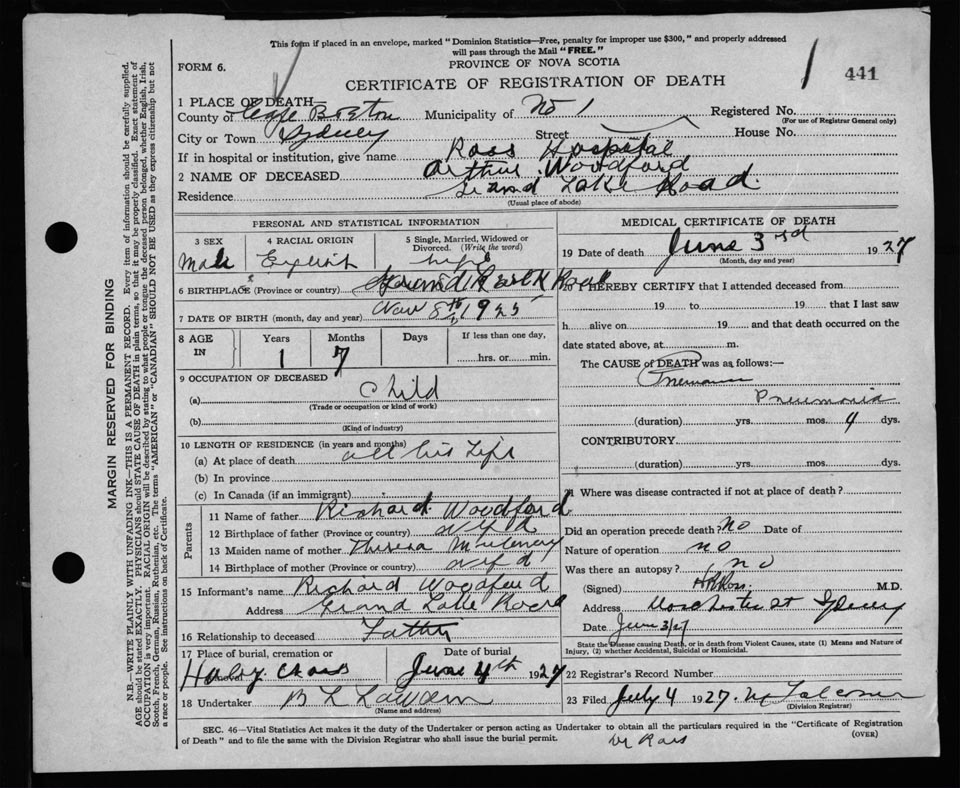 This form if placed in an envelope, marked "Dominion Statistics—Free, penalty for improper use $300," and properly addressed
will pass through the Mail "FREE."
FORM 6.
PROVINCE OF NOVA SCOTIA
CERTIFICATE OF REGISTRATION OF DEATH
1 441
1 PLACE OF DEATH—
County of Cape Breton Municipality of No 1 Registered No.
(For use of Registrar General only)
City or Town Sydney Street House No.
If in hospital or institution, give name Ross Hospital
2 NAME OF DECEASED Arthur Woodford
Residence Grand Lake Road.
(Usual place of abode)
PERSONAL AND STATISTICAL INFORMATION
3 SEX 4 RACIAL ORIGIN 5 Single, Married, Widowed or Divorced. (Write the word)
Male English
6 BIRTHPLACE (Province or country)
7 DATE OF BIRTH (month, day and year) Nov 8th 1925
8 AGE IN Years Months Days If less than one day,
1 7 hrs. or min.
9 OCCUPATION OF DECEASED
(a) Child
(Trade or occupation or kind of work)
(b)
(Kind of industry)
10 LENGTH OF RESIDENCE (in years and months)
(a) At place of death all his Life
(b) In province
(c) In Canada (if an immigrant)
Parents
11 Name of father Richard Woodford
12 Birthplace of father (Province or country) Nfd
13 Maiden name of mother Theresa
14 Birthplace of mother (Province or country) Nfd
15 Informant's name Richard Woodford
Address Grand Lake Road
16 Relationship to deceased Father
17 Place of burial, cremation or Date of burial
Holy Cross June 4th 1927
18 Undertaker B L
(Name and address)
MEDICAL CERTIFICATE OF DEATH
19 Date of death June 3rd 1927
(Month, day and year)
I HEREBY CERTIFY that I attended deceased from
19 to 19 that I last saw
h alive on 19 and that death occurred on the
date stated above, at m.
The CAUSE of DEATH was as follows:—
Pneumonia
(duration) yrs. mos. 4 dys.
CONTRIBUTORY
(duration) yrs. mos. dys.
21 Where was disease contracted if not at place of death?
Did an operation precede death? No Date of
Nature of operation no
Was there an autopsy? no
(Signed) Ross M.D.
Address Dorchester St Sydney
Date June 3/27
State the Disease causing Death, or in death from Violent Causes, state (1) Means and Nature of
Injury, (2) whether Accidental, Suicidal or Homicidal.
22 Registrar's Record Number
23 Filed July 4 1927.
(Division Registrar)
SEC. 46—Vital Statistics Act makes it the duty of the Undertaker or person acting as Undertaker to obtain all the particulars required in the "Certificate of Registration
of Death" and to file the same with the Division Registrar who shall issue the burial permit.
(OVER)
Dr Ross
MARGIN RESERVED FOR BINDING
N.B.—WRITE PLAINLY WITH UNFADING INK—THIS IS A PERMANENT RECORD. Every item of information should be carefully supplied.
AGE should be stated EXACTLY. PHYSICIANS should STATE CAUSE OF DEATH in plain terms, so that it may be properly classified. Exact statement of
OCCUPATION is very important. RACIAL ORIGIN will be described by stating to what people or tongue the deceased person belonged, whether English, Irish,
Scotch, French, German, Russian, Ruthenian, etc. The terms "AMERICAN" or "CANADIAN" SHOULD NOT BE USED as they express citizenship but not
a race or people. See instructions on back of Certificate.